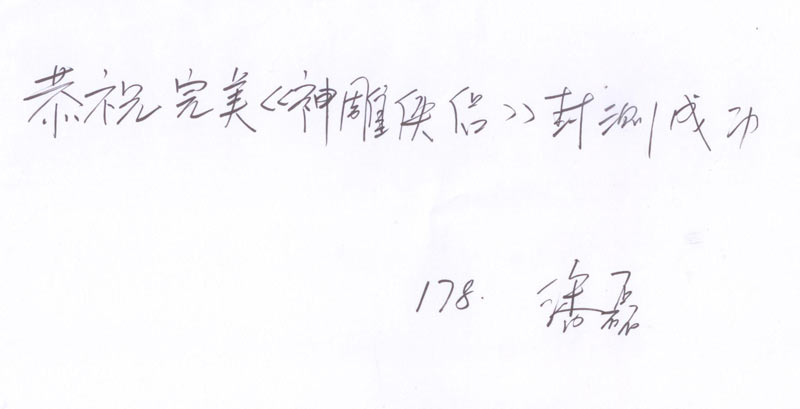 恭祝完美《神雕侠侣》封测成功
178. 徐磊